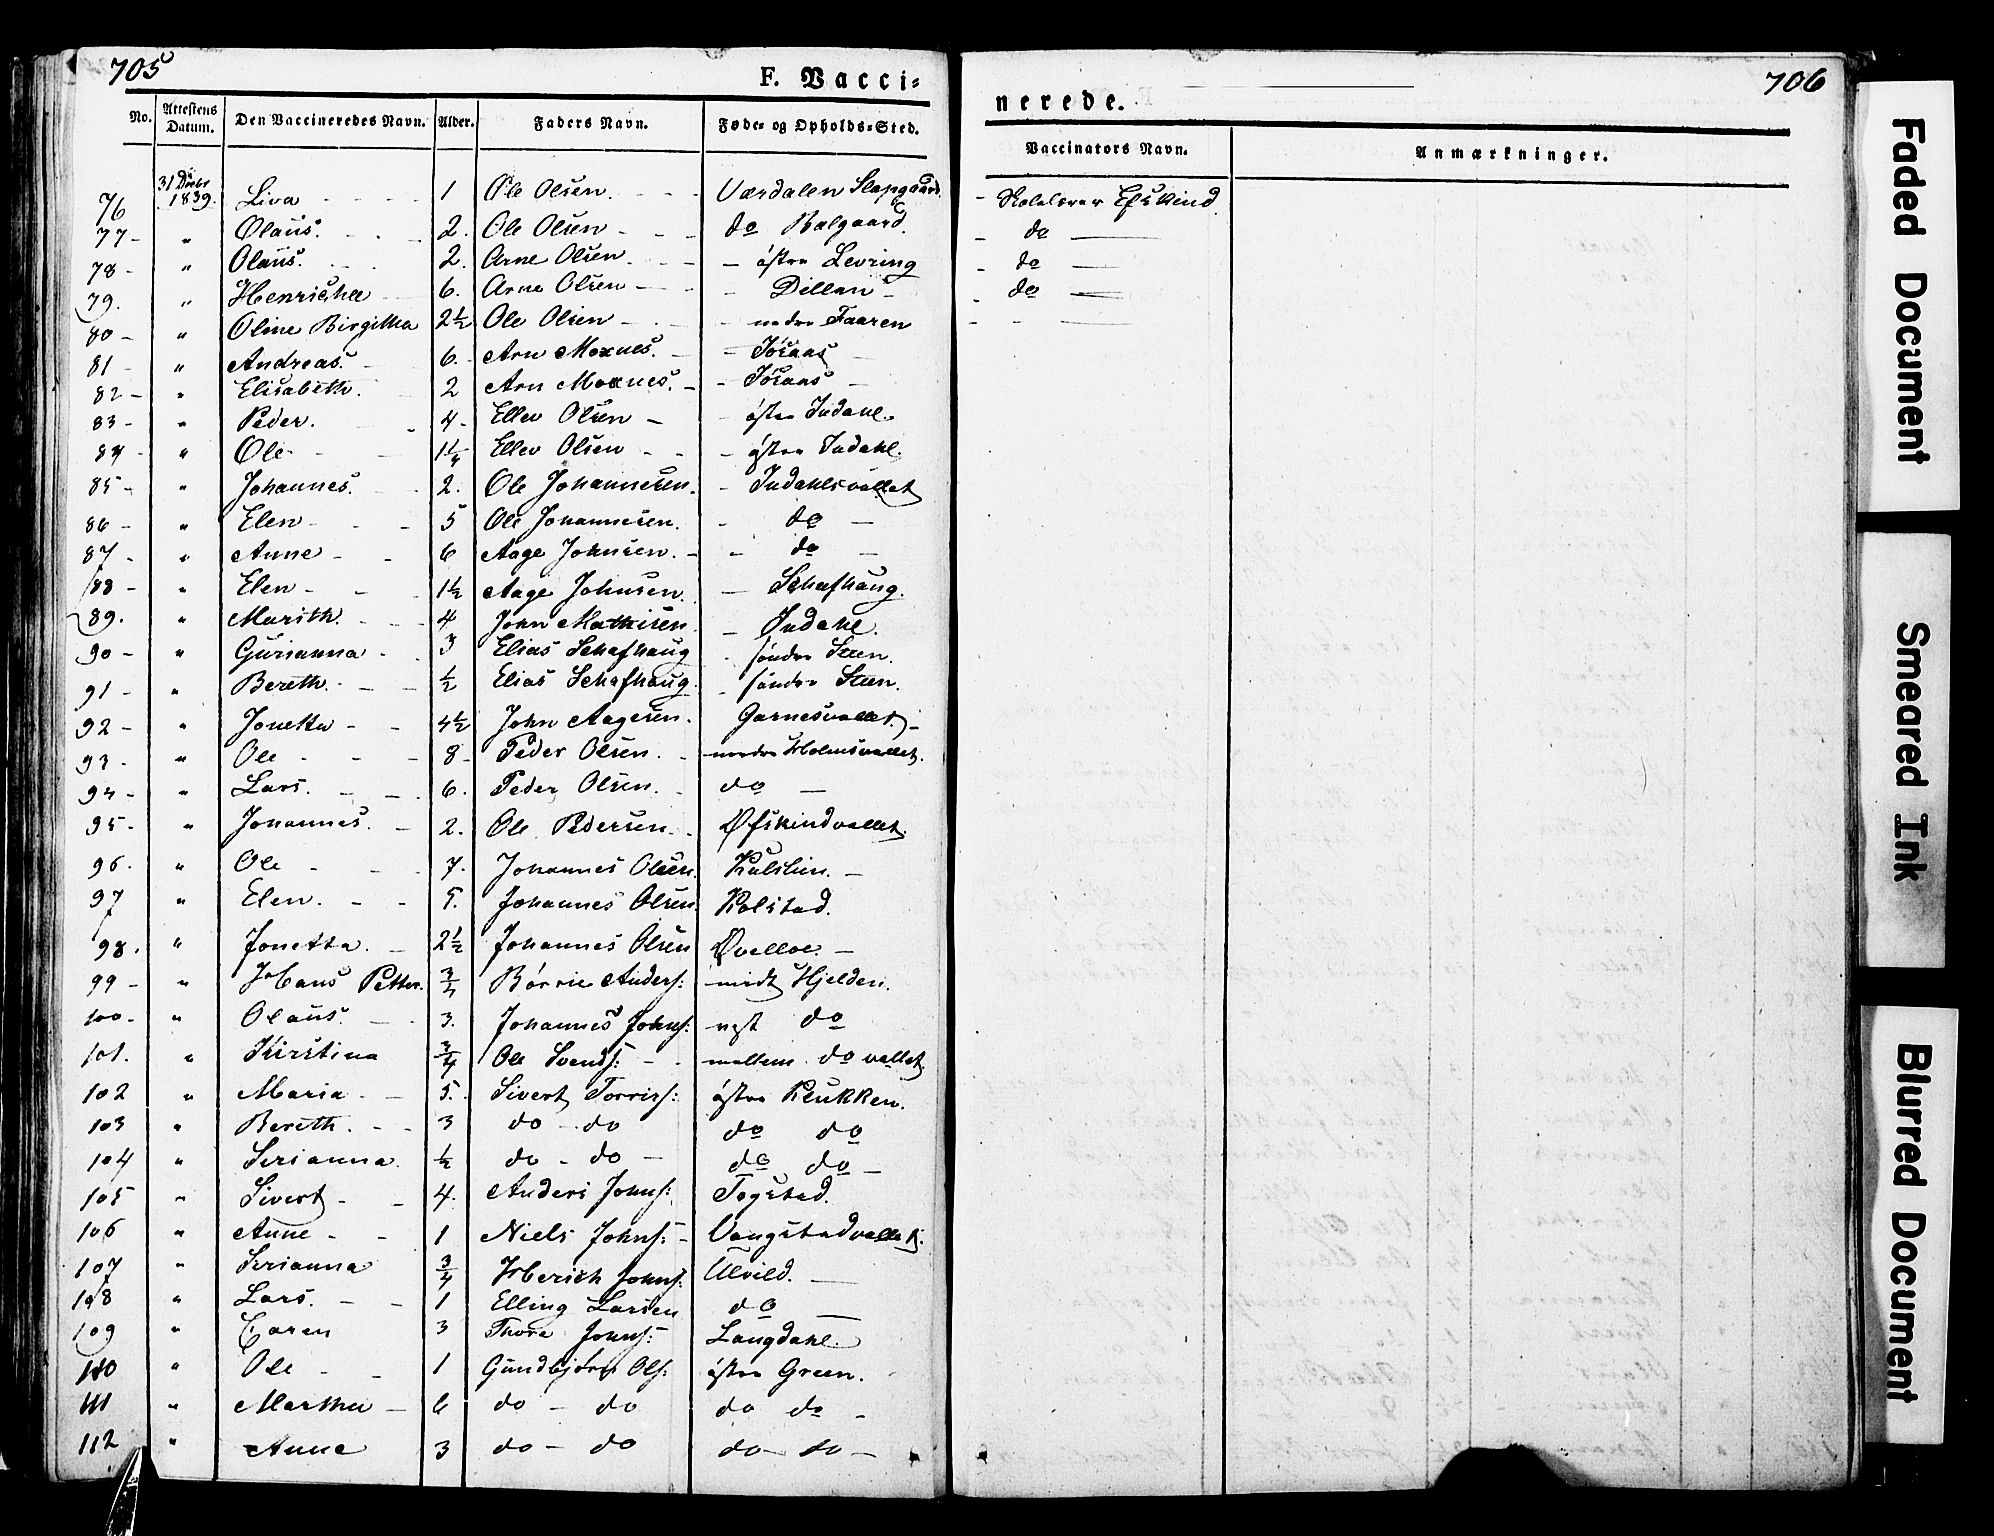 705
F. Vacci-
nerede.
706
No. Attestens Datum. Den Vaccineredes Navn. Alder. Faders Navn. Føde- og Opholds-Sted. Vaccinators Navn. Anmærkninger.
76 31 Decbr 1839. Liva 1 Ole Olsen. Værdalen Slapgaard. Skolelærer Efskind
77 " Olaus. 2. Ole Olsen do Balgaard. do
78 " Olaus. 2. Arne Olsen østre Levring do
79. " Henricha 6. Arne Olsen Dillan do
80 " Oline Birgitha 2½ Ole Olsen nedre Faaren
81 " Andreas. 6. Arn Moxnes. Jøsaas
82 " Elisabeth. 2 Arn Moxnes. Jøsaas
83 " Peder. 4. Ellev Olsen østre Indahl.
84 " Ole 1¼ Ellev Olsen østre Indahl.
85 " Johannes. 2. Ole Johannesen. Indahlsvallet
86 " Elen 5 Ole Johannesen. do
87 " Anne 6 Aage Johnsen. do
88 " Elen 1½ Aage Johnsen. Schafhaug.
89. " Marith. 4 John Mathisen Indahl.
90 " Gurianna 3 Elias Schafhaug søndre Steen.
91 " Bereth. ½ Elias Schafhaug søndre Steen.
92 " Jonetta 4½ John Aagesen. Garnesvallet.
93 " Ole 8 Peder Olsen. nedre Holmsvallet.
94 " Lars. 6. Peder Olsen. do
95 " Johannes. 2. Ole Pedersen. Øfskindvallet.
96. " Ole 7. Johannes Olsen. Kulslien.
97 " Elen. 5. Johannes Olsen. Kolstad.
98. " Jonetta. 2½ Johannes Olsen Qvelloe.
99 " Hans Petter. ¾ Børrie Anders: midt Hjelden.
100 " Olaus. 3. Johannes Johns: vest do
101. " Kirstina ¾ Ole Svends: mellem do vallet.
102 " Maria 5. Sivert Torris: østre Klukken.
103 " Bereth. 3 do do do do
104 " Serianna. ½ do do do do
105 " Sivert 4. Anders Johns: Togstad.
106 " Anne 1 Niels Johns: Vangstadvallet.
107 " Serianna ¾ Johns: Ulvild.
108 " Lars. 1 Elling Larsen do
109 " Caren 3 Thore Johns: Langdahl.
110 " Ole 1 Gundbjørn Ols: østre Green.
111 " Martha 6 do do do do
112 " Anne 3 do do do do
Faded Document
Smeared Ink
Blurred Document